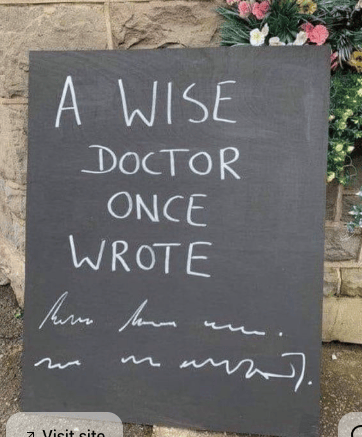 A WISE
DOCTOR
ONCE
WROTE
Visit site